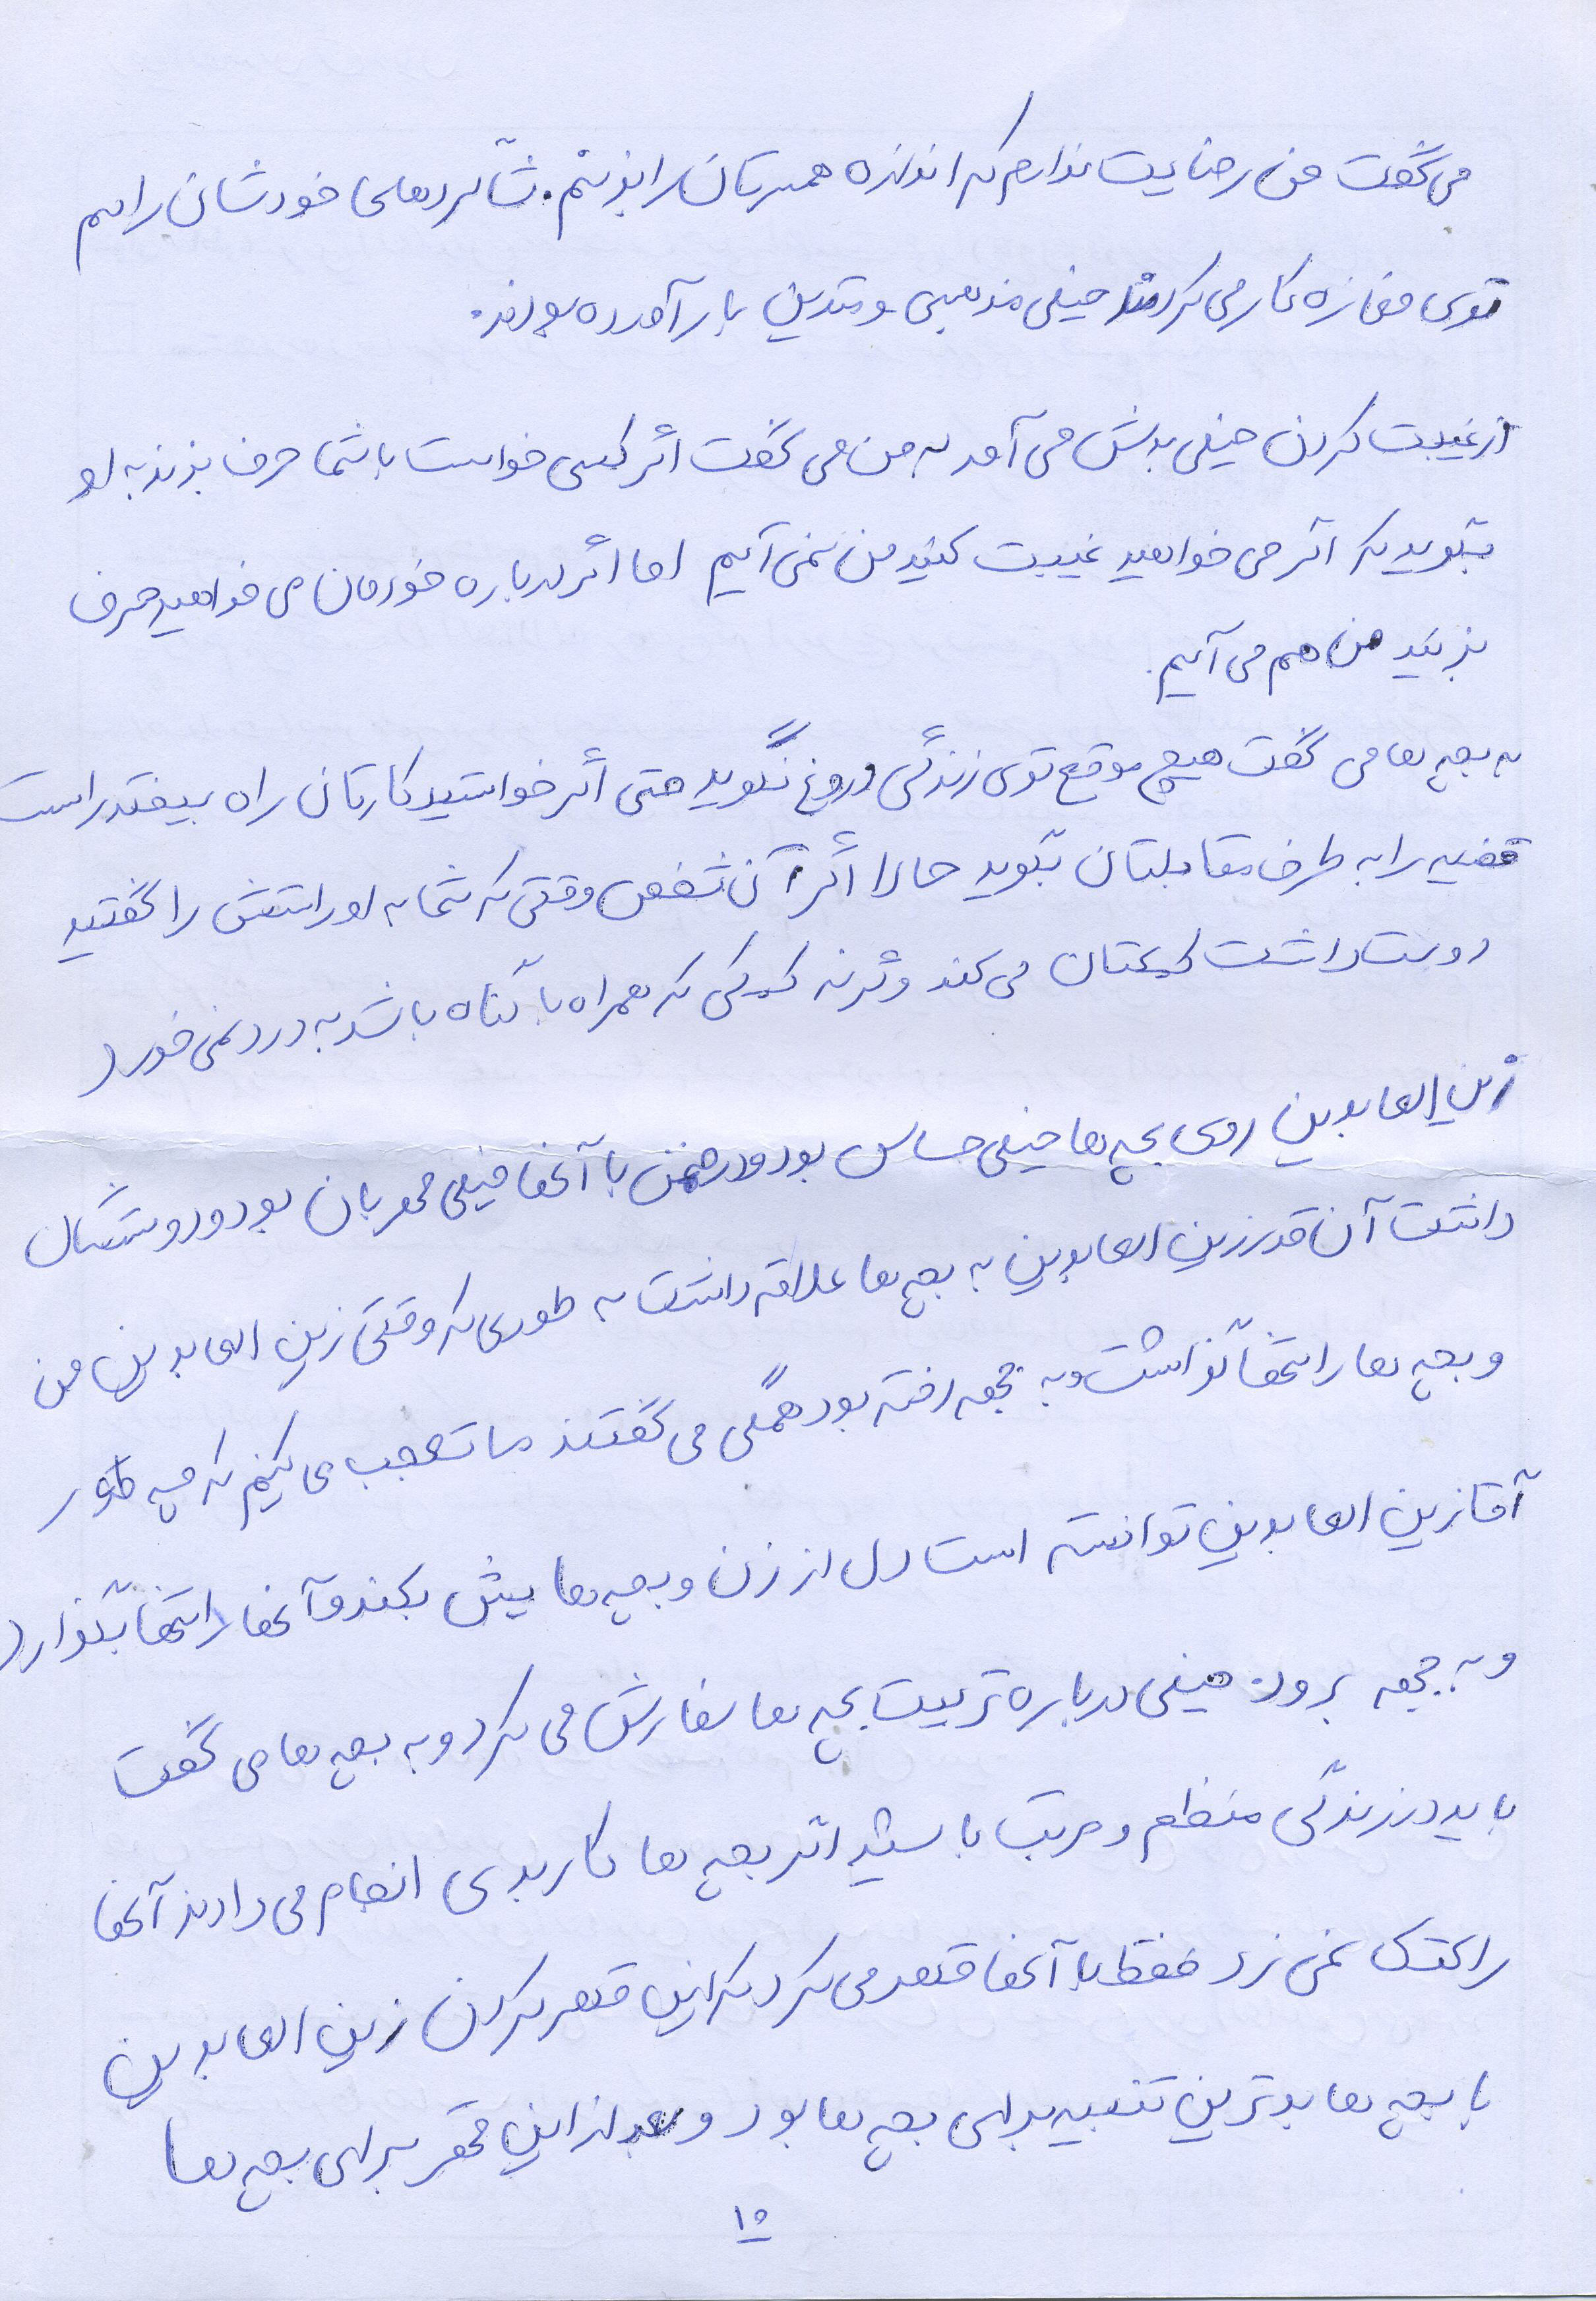 می گفت من رضایت ندارم که اندازه همسرتان را بزنم. شاگردهای خودشان را هم
توی مغازه کار می کردند خیلی مذهبی و متدین بار آمده بودند.
از غیبت کردن خیلی بدش می آمد به من می گفت اگر کسی خواست با شما حرف بزند به او
بگوید که اگر می خواهید غیبت کنید من نمی آیم اما اگر درباره خودمان می خواهید حرف
بزنید من هم می آیم.
به بچه ها می گفت هیچ موقع توی زندگی دروغ نگوید حتی اگر خواستید کارتان راه بیفتد راست
قضیه را به طرف مقابلتان بگوید حالا اگر آن شخص وقتی که شما به او راستش را گفتید
دوست داشت کمکتان می کند وگرنه کمکی که همراه با گناه باشد به درد نمی خورد
زین العابدین روی بچه ها خیلی حساس بود و در ضمن با آنها خیلی مهربان بود و دوستشان
داشت آن قدر زین العابدین به بچه ها علاقه داشت به طوری که وقتی زین العابدین من
و بچه ها را تنها گذاشت و به جبهه رفته بود همگی می گفتند ما تعجب می کنیم که چه طور
آقا زین العابدین توانسته است دل از زن و بچه هایش بکند و آنها را تنها بگذارد
و به جبهه برود. خیلی درباره تربیت بچه ها سفارش می کرد و به بچه ها می گفت
باید در زندگی منظم و مرتب باشید اگر بچه ها کار بدی انجام می دادند آنها
را کتک نمی زد فقط با آنها قهر می کرد که این قهر کردن زین العابدین
با بچه ها بدترین تنبیه برای بچه ها بود و بعد از این قهر برای بچه ها
۱۵